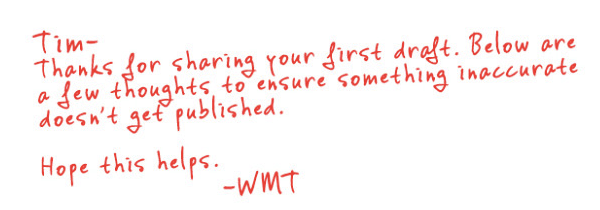 Tim-
Thanks for sharing your first draft. Below are
a few thoughts to ensure something inaccurate
doesn't get published.
Hope this helps.
-WMT